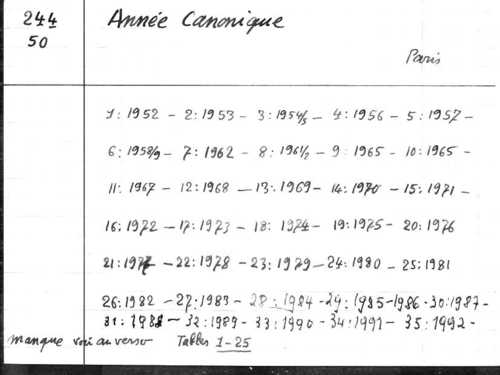 244 Année Canonique
50
Paris
1: 1952 - 2: 1953 - 3: 1954/5 - 4: 1956 - 5: 1957 -
6: 1958/9 - 7: 1962 - 8: 1961/2 - 9: 1965 - 10: 1965 -
11: 1967 - 12: 1968 - 13: 1969 - 14: 1970 - 15: 1971 -
16: 1972 - 17: 1973 - 18: 1974 - 19: 1975 - 20: 1976
21: 1977 - 22: 1978 - 23: 1979 - 24: 1980 - 25: 1981
26: 1982 - 27: 1983 - 28: 1984 - 29: 1985-1986 - 30: 1987 -
31: 1988 - 32: 1989 - 33: 1990 - 34: 1991 - 35: 1992 -
manque voir au verso Tables 1-25